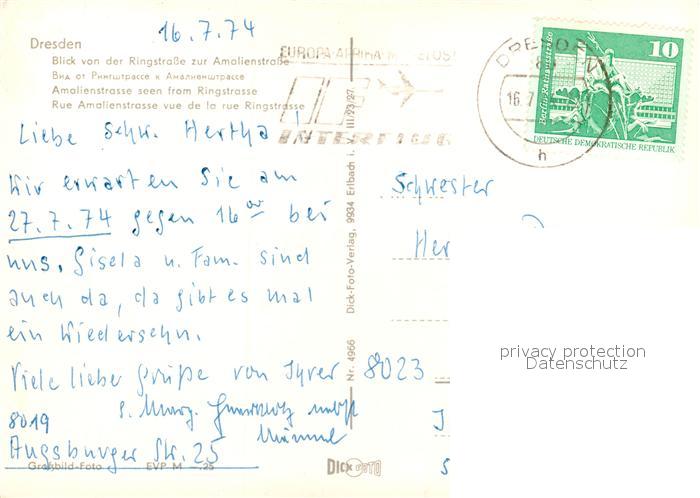 16.7.74
Dresden
Blick von der Ringstraße zur Amalienstraße
Вид от Рингштрассе к Амалиенштрассе
Amalienstrasse seen from Ringstrasse
Rue Amalienstrasse vue de la rue Ringstrasse
Liebe Schw. Hertha!
Wir erwarten Sie am
27.7.74 gegen 16 00 bei
uns. Gisela u. Fam. sind
auch da, da gibt es mal
ein Wiedersehn.
Viele liebe Grüße von Ihrer
S. Marg.
8019
Augsburger Str. 25
Großbild-Foto EVP M -,25
Nr. 4966 Dick-Foto-Verlag, 9934 Erlbach i. III/23/27
DICK FOTO
EUROPA AFRIKA
INTERFLUG
DRESDEN
16.7
h
10
Berlin, Rathausstraße
DEUTSCHE DEMOKRATISCHE REPUBLIK
Schwester
Her
8023
privacy protection
Datenschutz